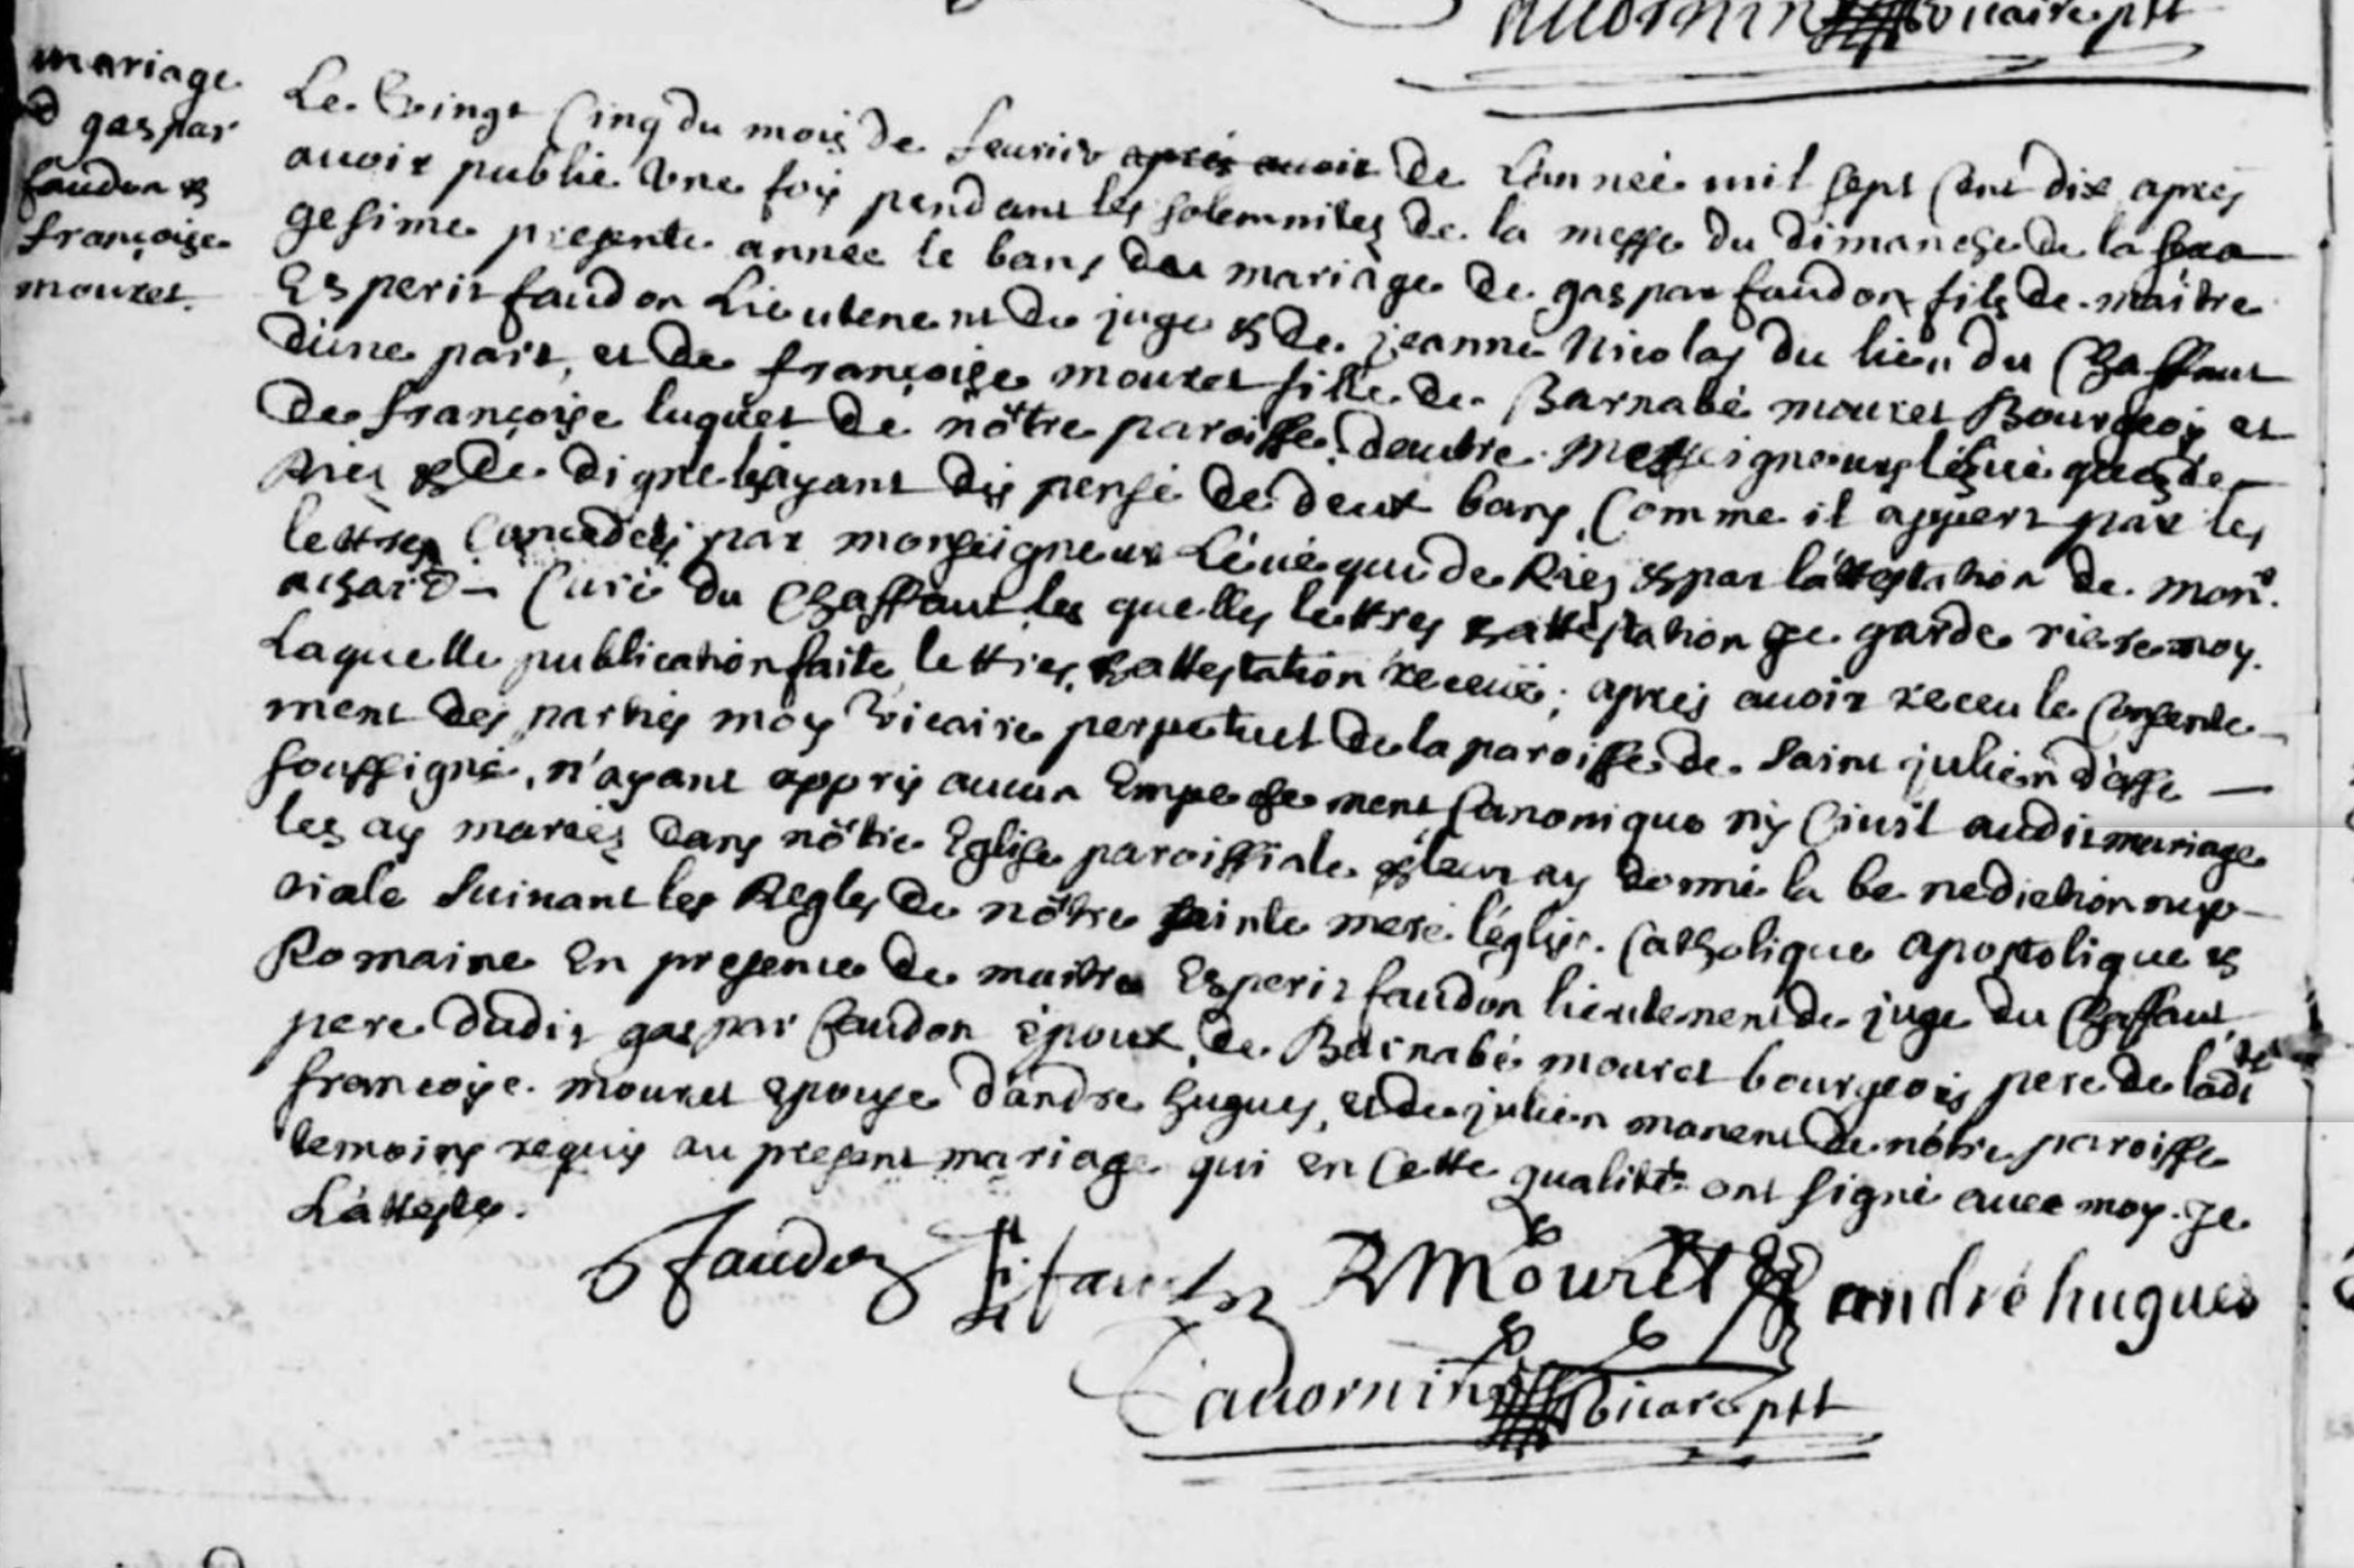 vicaire ptt
mariage
d gaspar
faudon &
françoise
mouret.
Le vingt cinq du mois de feurier après auoir de L'année mil sept cent dix apres
auoir publié vne fois pendant les solemnites de la messe du dimanche de la sexa
gesime presente année le bans du mariage de gaspar faudon fils de maitre
Esperit faudon Lieutenent de juge & de jeanne Nicolas du lieu du Chaffaut
d'une part, et de françoise mouret fille de Barnabé mouret Bourgeois et
de françoise luquet de nôtre paroisse d'eutre. Messeigneurs l'éuéques de
Riez & de digne layant dispensé de deux bans, Comme il appert par les
lettres Concedées par monseigneur L'éuéque de Riez & par l'attestation de monr.
achard – Curé du Chaffaut les quelles lettres & attestation je garde riere moy.
Laquelle publication faite, lettres, & attestation receuë; apres auoir receu le Consente
ment des parties moy vicaire perpetuel de la paroisse de Saint julien d'asse —
soussigné, n'ayant appris aucun Empechement Canonique ny Ciuil audit mariage
les ay mariés dans nôtre Eglise paroissiale & leur ay donné la benediction nup
tiale Suiuant les Regles de nôtre sainte mere l'église. Catholique apostolique &
Romaine En presence de maitre Esperit faudon lieutenent de juge du Chaffaut,
pere dudit gaspar faudon époux, de Barnabé mouret bourgeois pere de ladte
francoise. mouret epouse d'andre hugues, et de julien manent de nôtre paroisse
temoins requis au present mariage qui en Cette qualité ont signé auec moy. je
L'atteste.
Faudon faudon B Mouret andré hugues
Cauornin vicare ptt